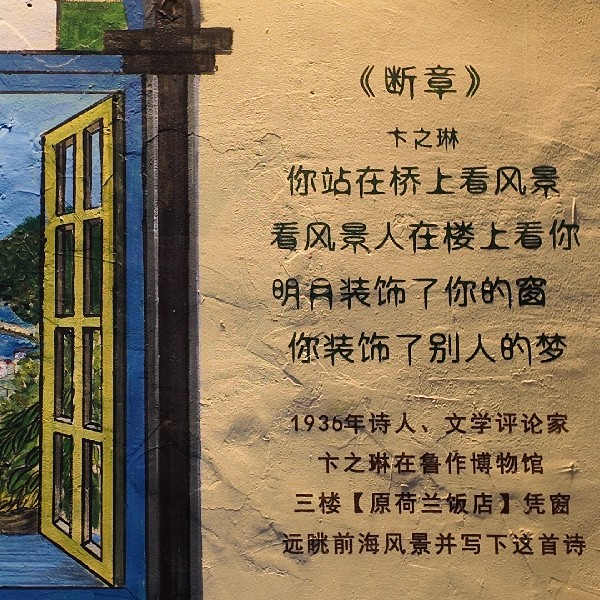 《断章》
卞之琳
你站在桥上看风景
看风景人在楼上看你
明月装饰了你的窗
你装饰了别人的梦
1936年诗人、文学评论家
卞之琳在鲁作博物馆
三楼【原荷兰饭店】凭窗
远眺前海风景并写下这首诗